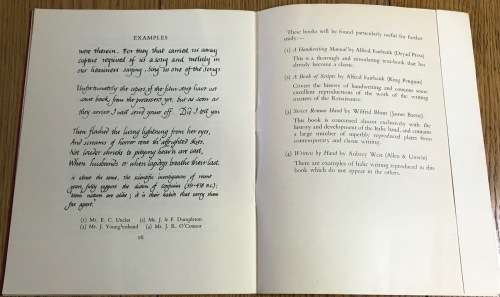 EXAMPLES
were thereon. For they that carried us away
captive required of us a song and melody in
our heaviness saying, Sing us one of the songs
Unfortunately the copies of the plain song have not
come back from the possessor yet, but as soon as
they arrive I will send yours off. Did I tell you
Then flashed the living lightning from her eyes,
And screams of horror rend th' affrighted skies.
Not louder shrieks to pitying heav'n are cast,
When husbands or when lapdogs breathe their last
is about the same, the scientific investigations of recent
years fully support the dictum of
born nature are alike; it is their habits that carry them
far apart."
(1) Mr. E. C. Uncles (2) Mr. J. S. F.
(3) Mr. J. (4) Mr. J. R. O'Connor
16
These books will be found particularly useful for further
study:—
(1) A Handwriting Manual by Alfred Fairbank (Dryad Press)
This is a thorough and stimulating text-book that has
already become a classic.
(2) A Book of Scripts by Alfred Fairbank (King Penguin)
Covers the history of handwriting and contains some
excellent reproductions of the work of the writing
masters of the Renaissance.
(3) Sweet Roman Hand by Wilfrid Blunt (James Barrie)
This book is concerned almost exclusively with the
history and development of the Italic hand, and contains
a large number of superbly reproduced plates from
contemporary and classic writing.
(4) Written by Hand by Aubrey West (Allen & Unwin)
There are examples of Italic writing reproduced in this
book which do not appear in the others.